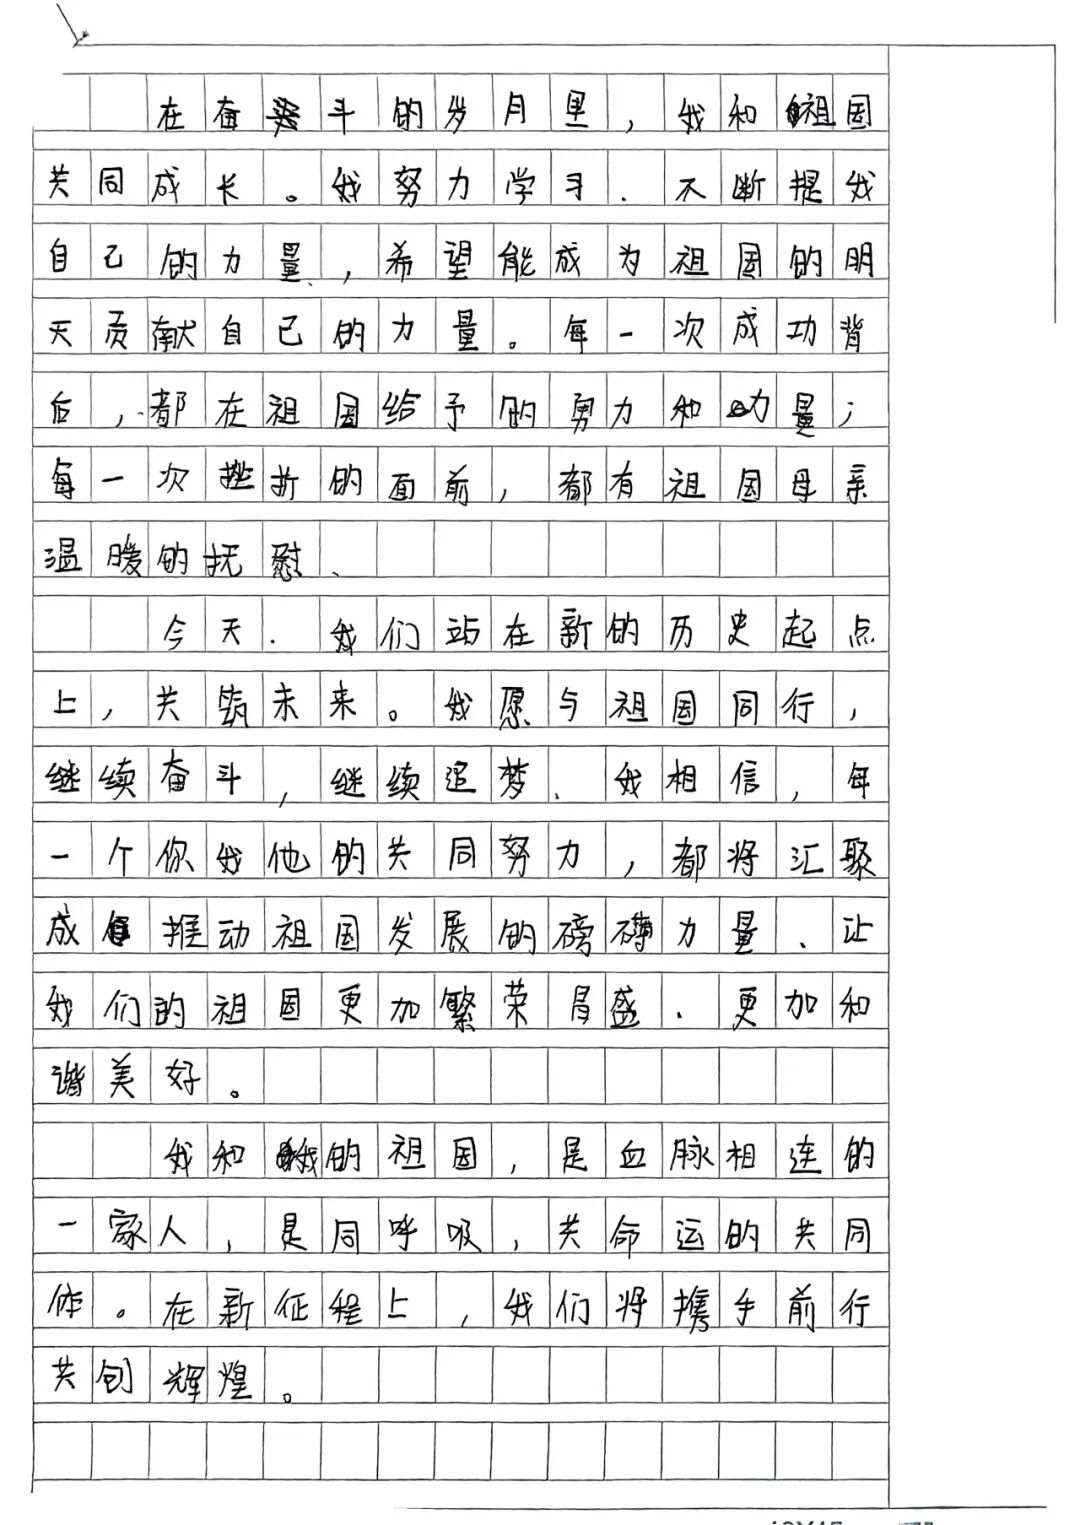 在奋斗的岁月里，我和祖国
共同成长。我努力学习．不断提我
自己的力量，希望能成为祖国的明
天贡献自己的力量。每一次成功背
后，都在祖国给予的勇力和动量；
每一次挫折的面前，都有祖国母亲
温暖的抚慰、
今天．我们站在新的历史起点
上，共筑未来。我愿与祖国同行，
继续奋斗，继续追梦、我相信，每
一个你我他的共同努力，都将汇聚
成推动祖国发展的磅礴力量、让
我们的祖国更加繁荣昌盛．更加和
谐美好。
我和我的祖国，是血脉相连的
一家人，是同呼吸，共命运的共同
体。在新征程上，我们将携手前行
共创辉煌。